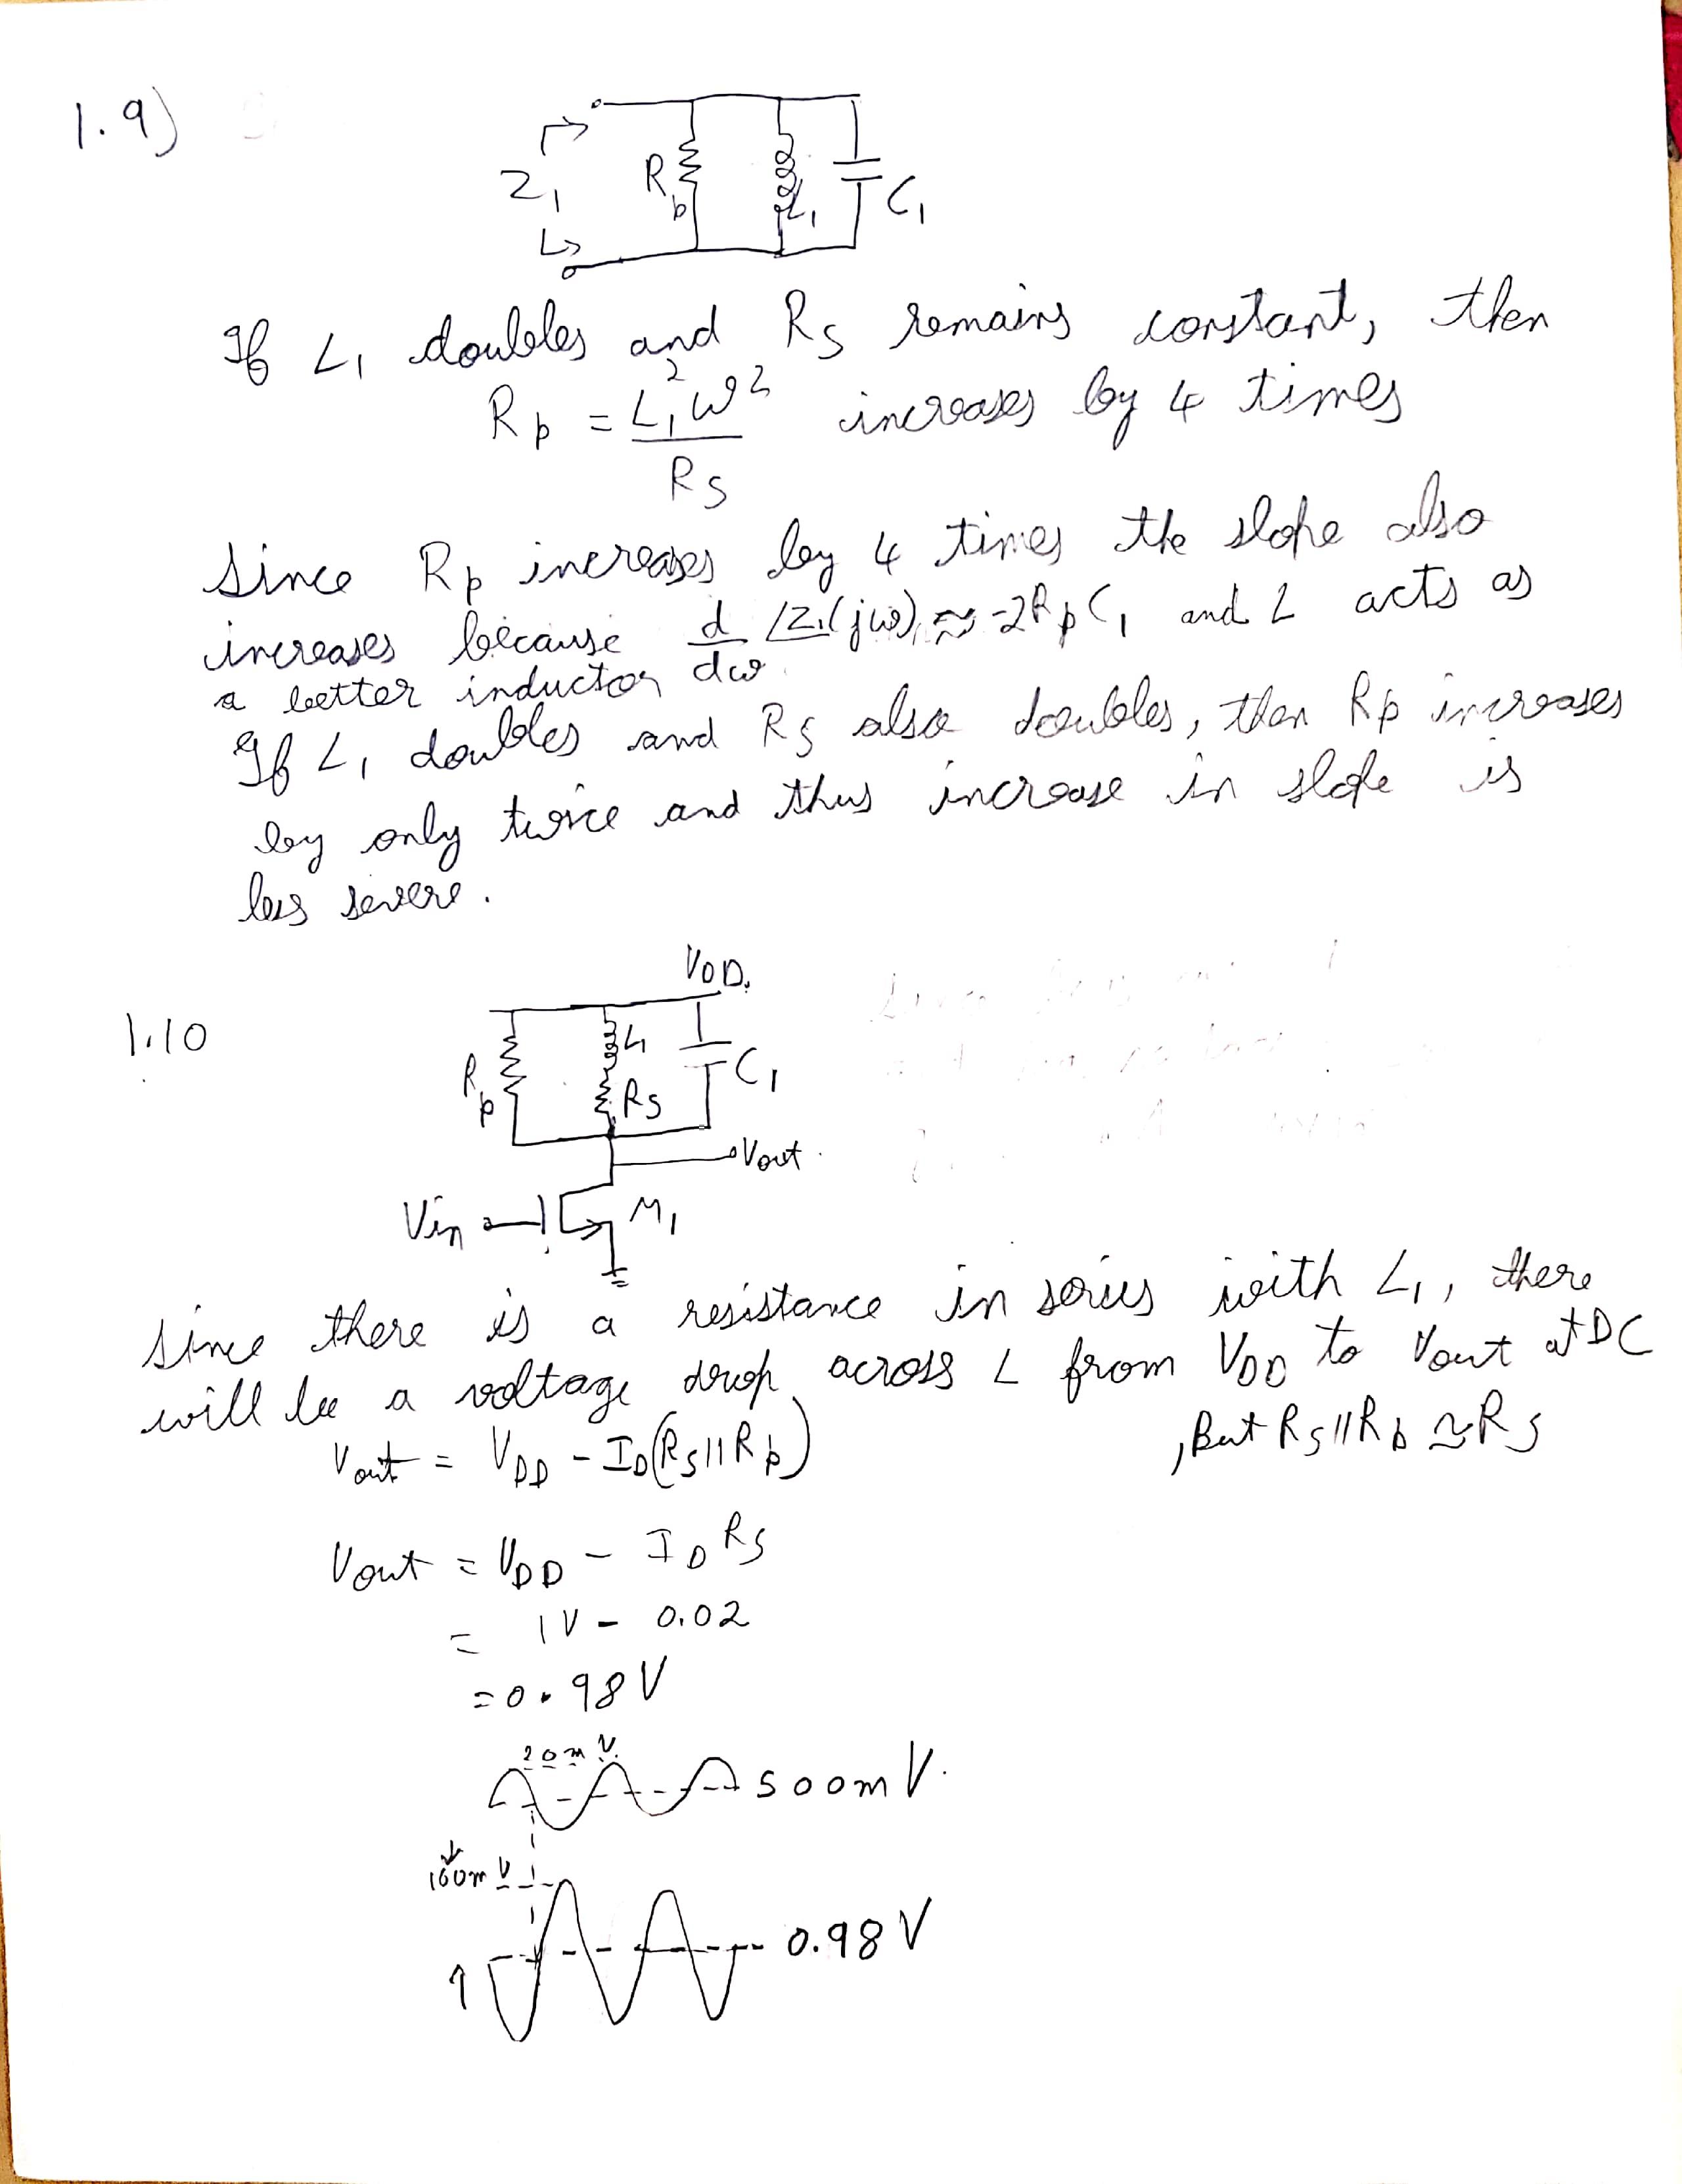 1.9)
Z1
Rp
L1
C1
If L1 doubles and RS remains constant, then
Rp = L1²ω² / RS increases by 4 times
Since Rp increases by 4 times the slope also
increases because d/dω ∠Z1(jω) ≈ -2RpC1 and L acts as
a better inductor
If L1 doubles and RS also doubles, then Rp increases
by only twice and thus increase in slope is
less severe.
1.10
VDD.
Rp
L1
RS
C1
Vout.
Vin
M1
Since there is a resistance in series with L1, there
will be a voltage drop across L from VDD to Vout at DC
Vout = VDD - ID(RS||Rp)
, But RS||Rp ≅ RS
Vout = VDD - ID RS
= 1V - 0.02
= 0.98V
20mV.
500mV.
0.98V